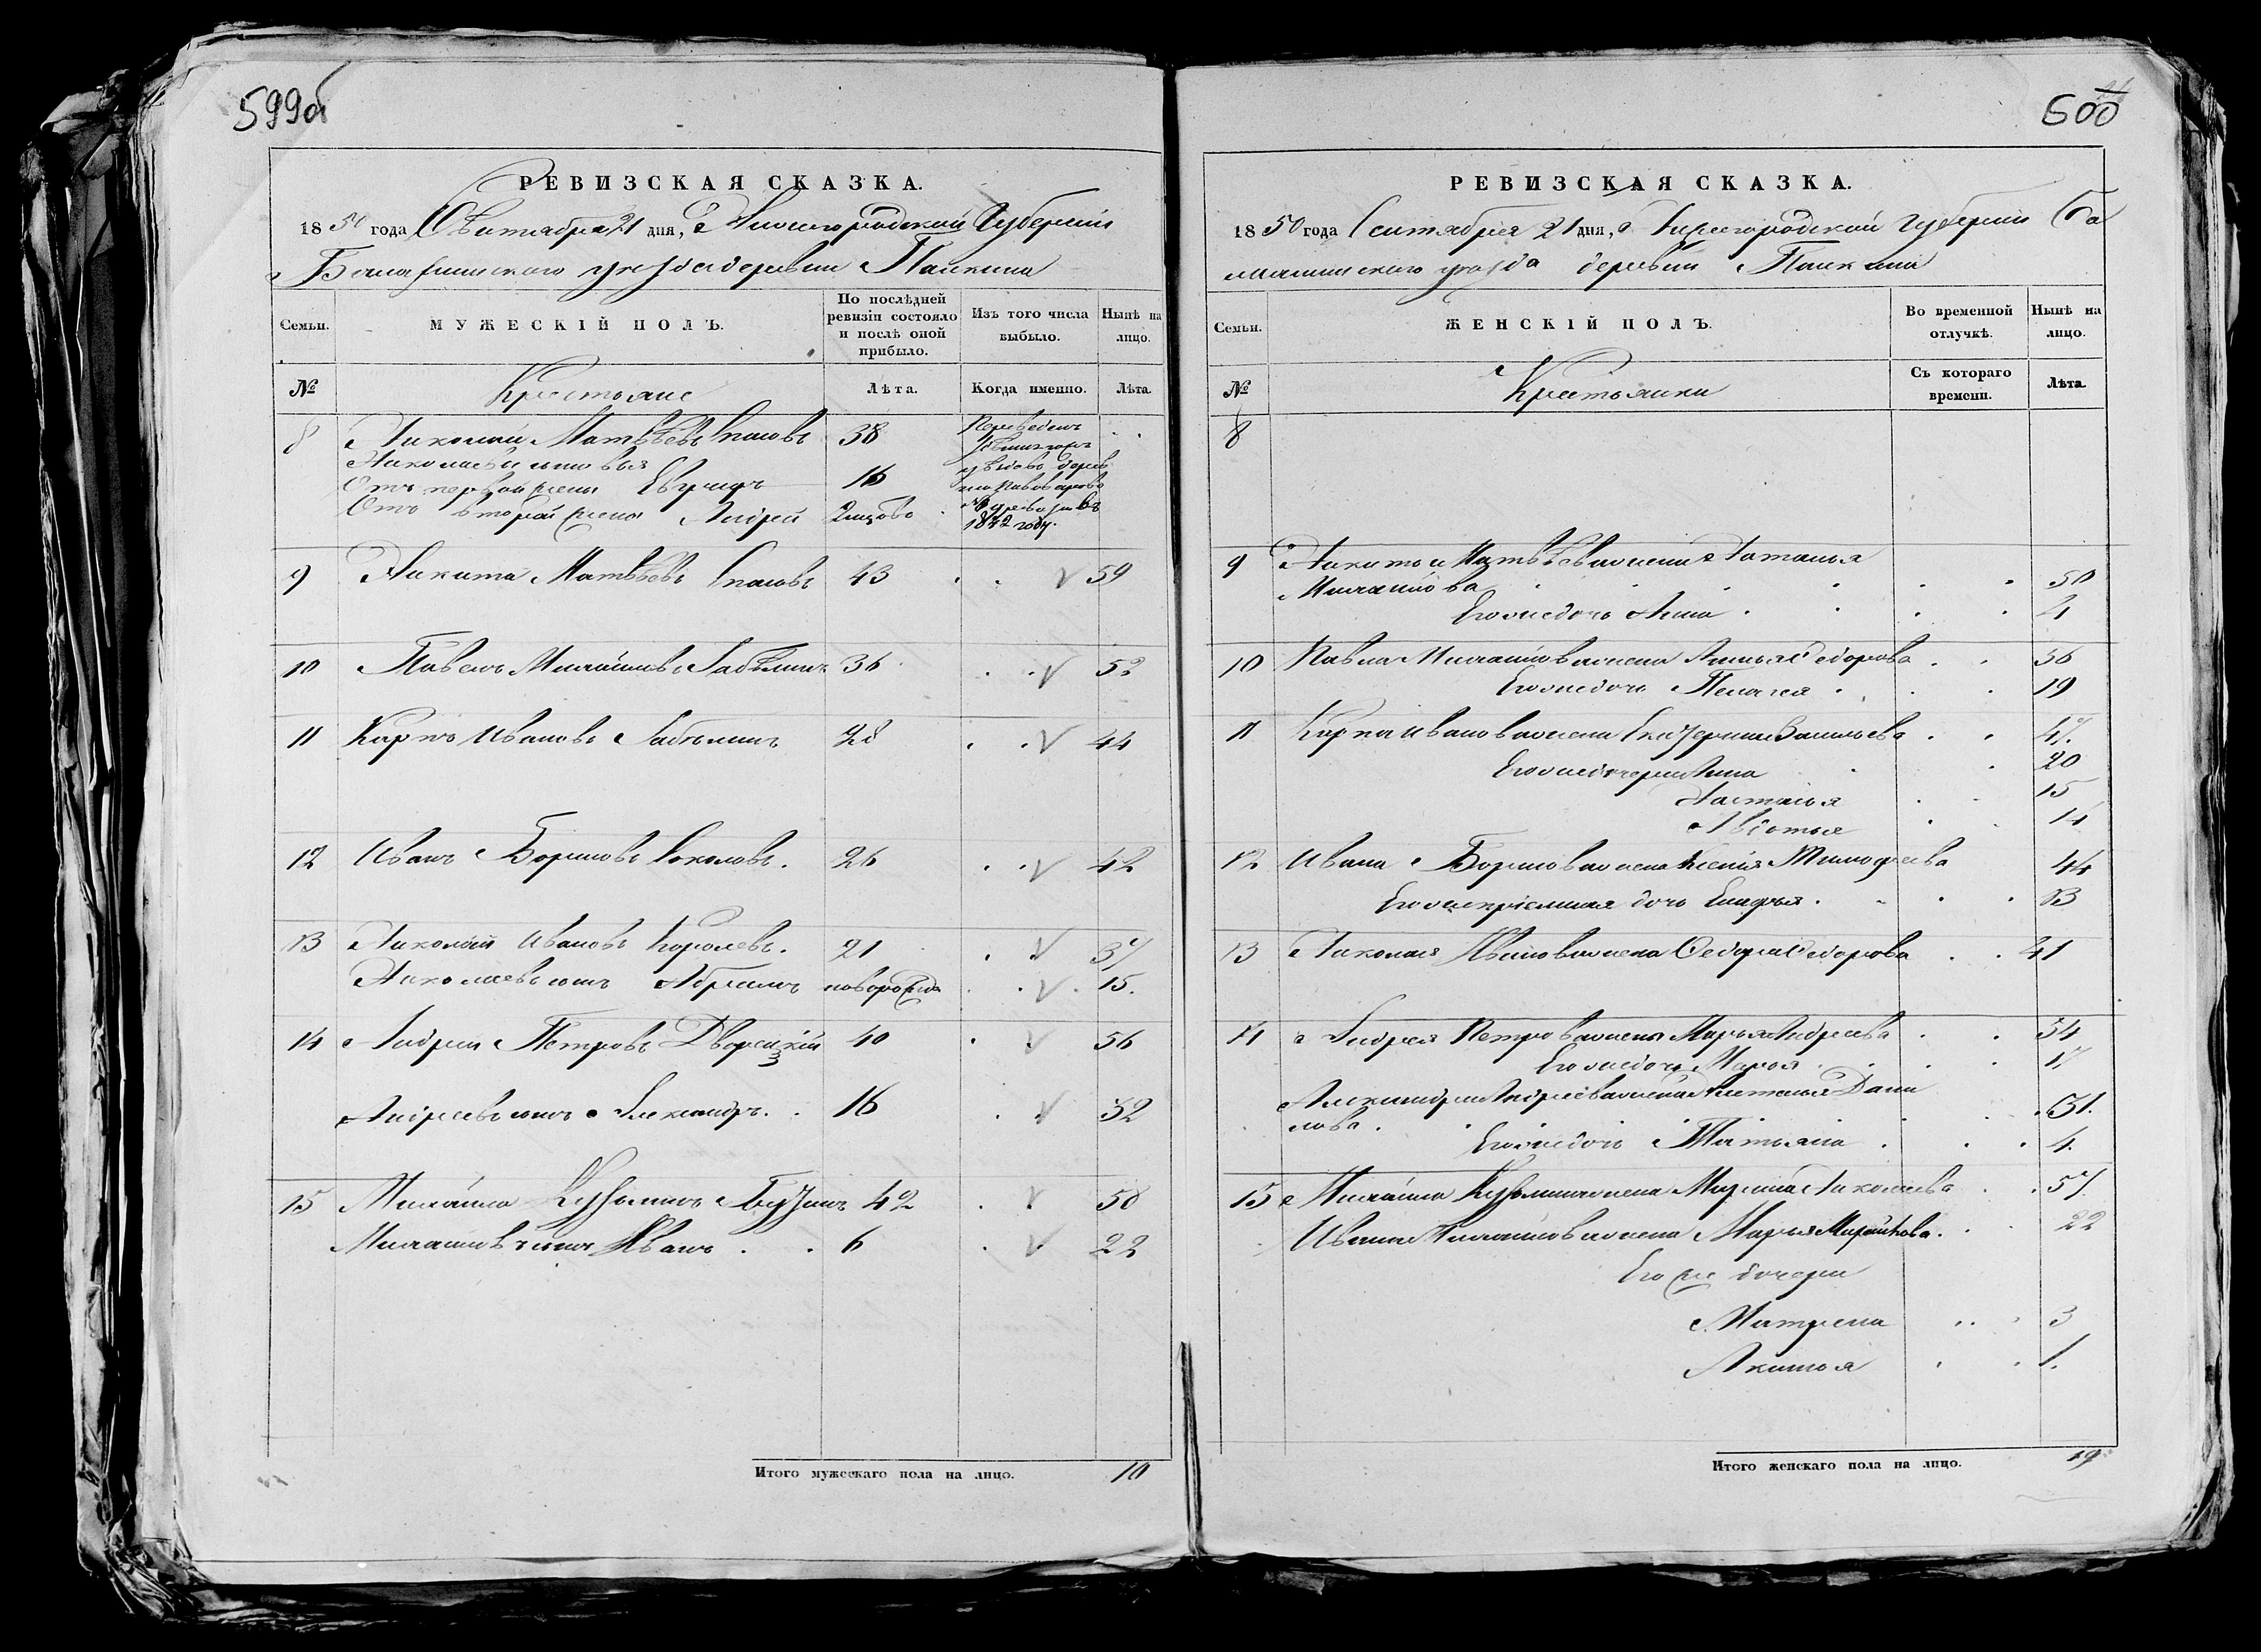 599об
РЕВИЗСКАЯ СКАЗКА.
1850 года Сентября 21 дня, Нижегородской Губернии
Балахнинского уезда деревни Панкина
Семьи.
МУЖЕСКІЙ ПОЛЪ.
По послѣдней ревизіи состояло и послѣ оной прибыло.
Изъ того числа выбыло.
Нынѣ на лицо.
№
Крестьяне
Лѣта.
Когда именно.
Лѣта.
8 Николай Матвѣевъ 38
Николаевы сыновья
Отъ первой жены 16
Отъ второй жены Андрей
9 Никита Матвѣевъ 43 59
10 Павелъ Михайловъ 36 52
11 Карпъ Ивановъ 28 44
12 Иванъ Борисовъ Соколовъ. 26 42
13 Николай Ивановъ Королевъ. 21 37
Николаевъ сынъ Абрамъ новорожд 15.
14 Андрей Петровъ Дворецкій 40 56
Андреевъ сынъ Александръ. 16 32
15 Михайла Кузьминъ 42 58
Михайловъ сынъ Иванъ 6 22
Итого мужескаго пола на лицо. 10
600
РЕВИЗСКАЯ СКАЗКА.
1850 года Сентября 21 дня, Нижегородской Губернии Ба
лахнинского уезда деревни Панкина
Семьи.
ЖЕНСКІЙ ПОЛЪ.
Во временной отлучкѣ.
Нынѣ на лицо.
№
Крестьянки
Съ котораго времени.
Лѣта
8
9 Никиты Матвѣева жена Наталья
Михайлова 50
Его же дочь Анна 4
10 Павла Михайлова жена Анна Федорова 56
Его же дочь Пелагея 19
11 Карпа Иванова жена Катерина Васильева 47.
Его же дочери Анна 20
Настасья 15
Авдотья 14
12 Ивана Борисова жена Ксенія Тимофеева 44
Его же пріемная дочь 13
13 Николая Иванова жена Федора Федорова 41
14 Андрея Петрова жена Марья Андреева 54
Его же дочь Марья 17
Александра Андреева жена Дани
лова. 31.
Его же дочь Татьяна 4.
15 Михайла Кузьмина жена Марина Николаева 57.
Ивана Михайлова жена Марья Михайлова. 22
Его же дочери
Матрена 3
Акилина 1.
Итого женскаго пола на лицо. 19